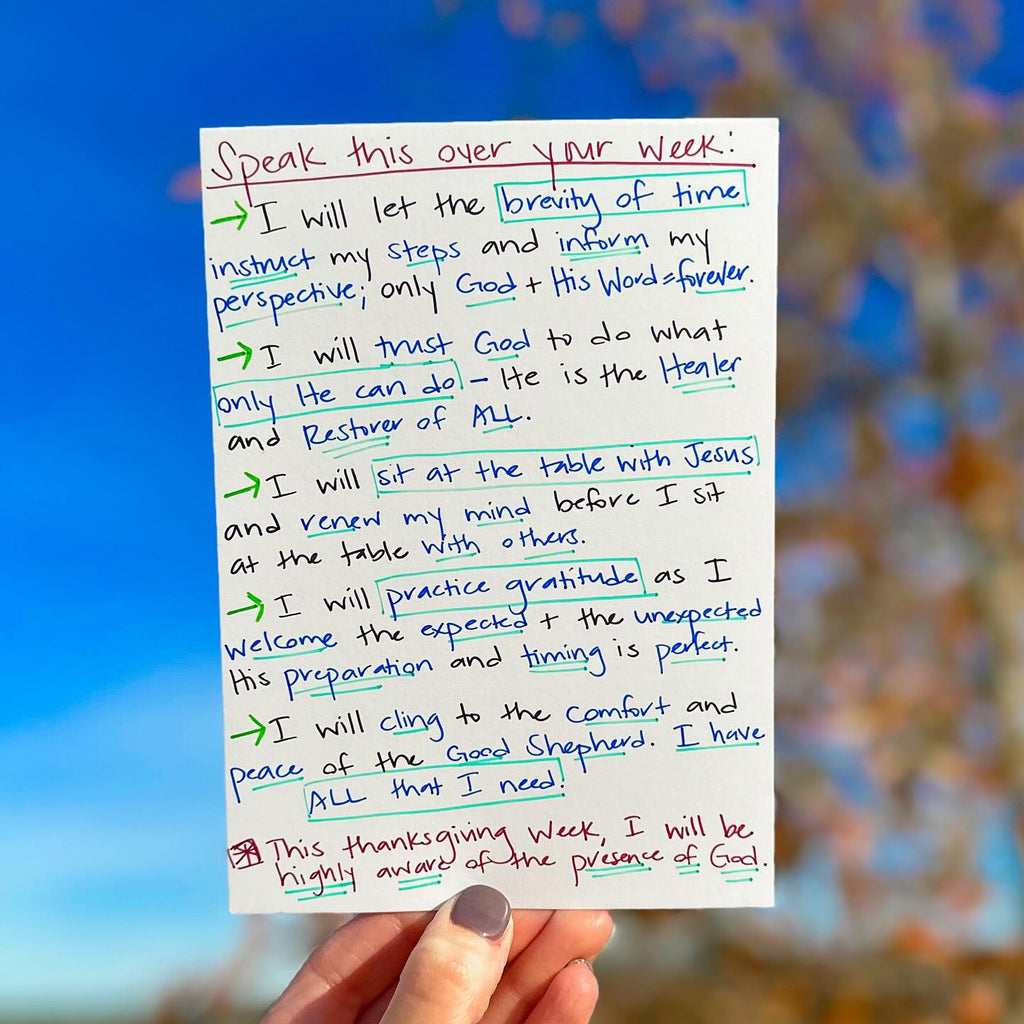 Speak this over your week:
→ I will let the brevity of time
instruct my steps and inform my
perspective; only God + His Word = forever.
→ I will trust God to do what
only He can do - He is the Healer
and Restorer of ALL.
→ I will sit at the table with Jesus
and renew my mind before I sit
at the table with others.
→ I will practice gratitude as I
welcome the expected + the unexpected
His preparation and timing is perfect.
→ I will cling to the comfort and
peace of the Good Shepherd. I have
ALL that I need!
This thanksgiving week, I will be
highly aware of the presence of God.